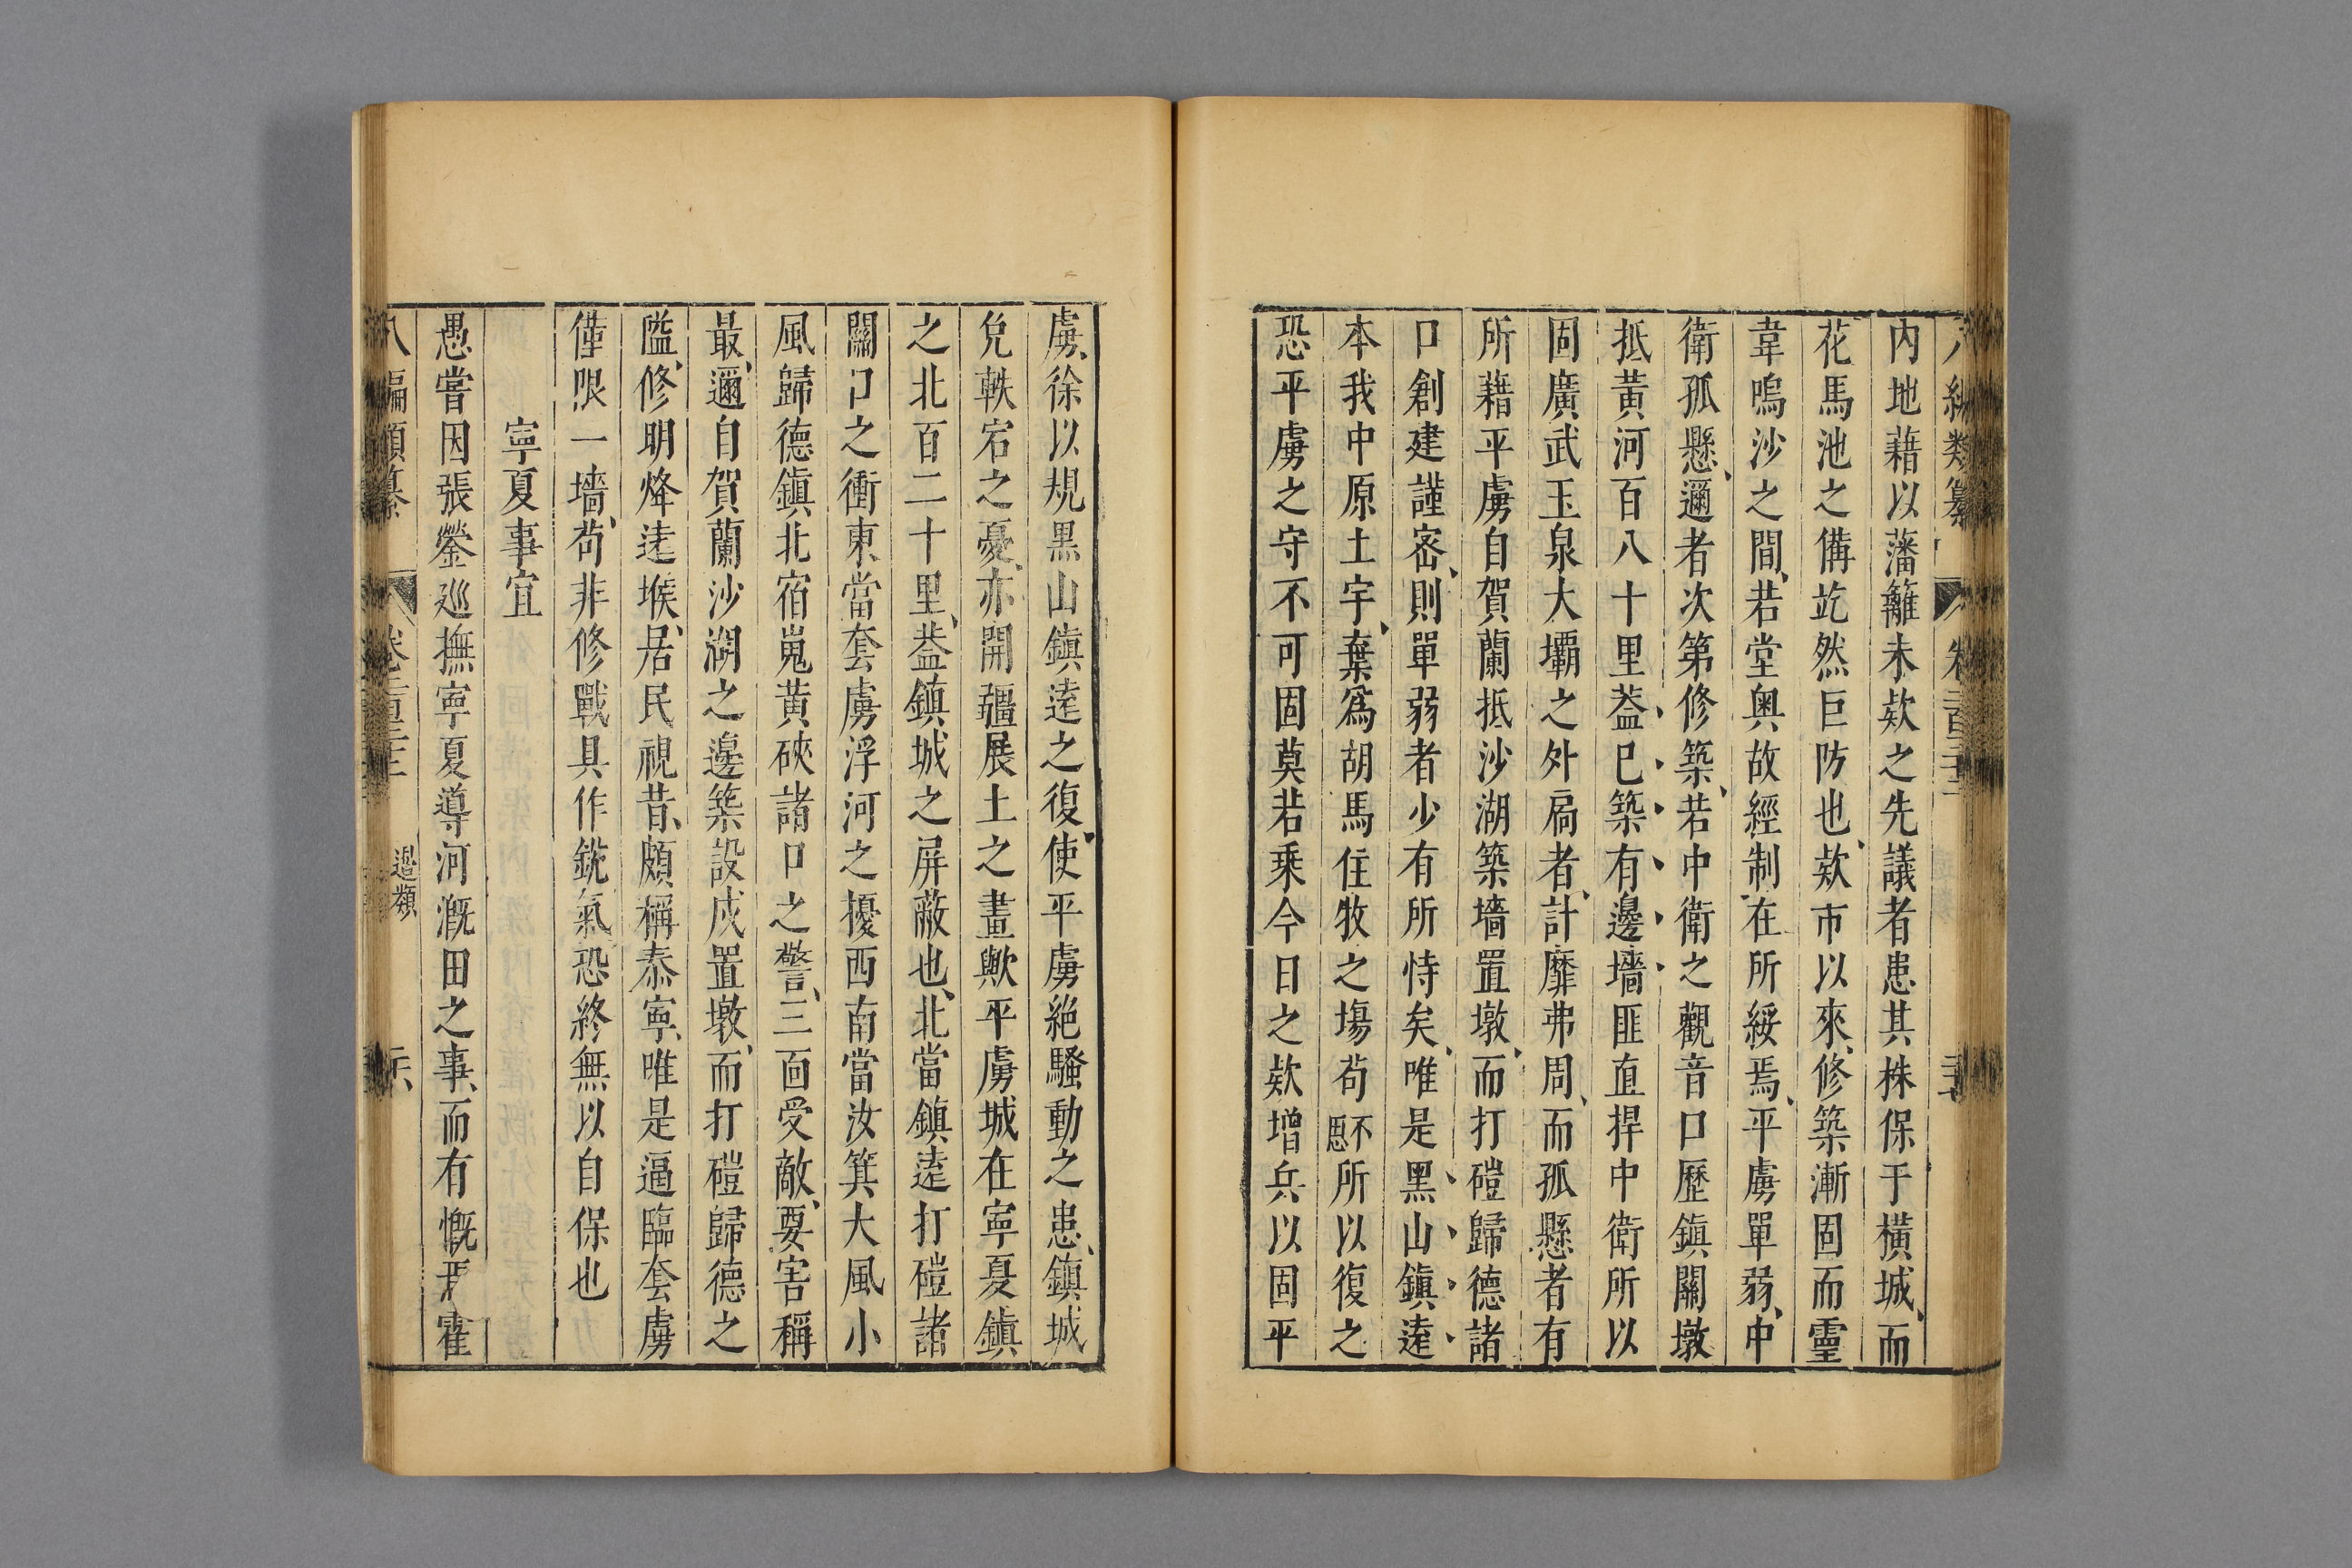 八編類纂
內地藉以藩籬未欵之先議者患其株保于橫城、而
花馬池之備屹然巨防也、欵市以來、修築漸固而靈
韋嗚沙之間、若堂奧故經制在所綏焉、平虜單弱、中
衛孤懸、邇者次第修築、若中衛之觀音口歷鎮關墩
抵黃河百八十里葢巳築有邊墻匪直捍中衛所以
固廣武玉泉大壩之外扃者、計靡弗周、而孤懸者有
所藉平虜自賀蘭抵沙湖築墻置墩、而打磑歸德諸
口創建謹密、則單弱者少有所恃矣、唯是黑山鎮遠
本我中原土宇、棄爲胡馬住牧之塲苟不思所以復之
恐平虜之守不可固莫若乘今日之欵增兵以固平
虜、徐以規黑山鎮遠之復、使平虜絕騷動之患、鎮城
免軼宕之憂、亦開疆展土之畫歟平虜城在寧夏鎮
之北百二十里、葢鎮城之屏蔽也、北當鎮遠打磑諸
關口之衝東當套虜浮河之擾西南當汝箕大風小
風歸德鎮北宿嵬黃硤諸口之警、三面受敵、要害稱
最、邇自賀蘭沙湖之邊築設戍置墩、而打磑歸德之
隘、修明烽逺堠、居民視昔、頗稱泰寧、唯是逼臨套虜
僅限一墻、苟非修戰具作銳氣恐終無以自保也
寧夏事宜
愚嘗因張鎣巡撫寧夏導河漑田之事、而有慨焉霍
八編類纂
邊類